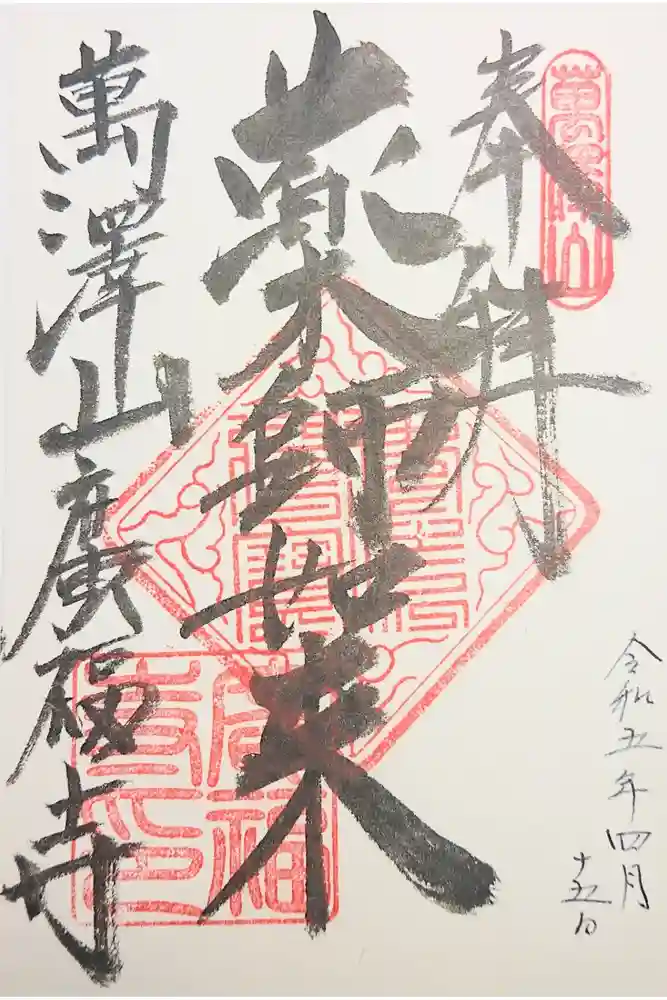 奉拝
薬師如来
萬澤山廣福寺
令和五年四月
十五日
萬澤山